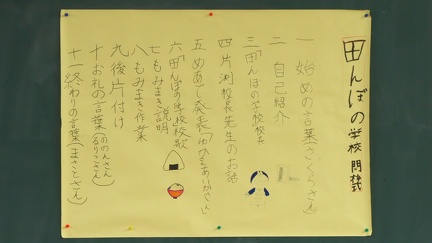 田んぼの学校 開校式
一 始めの言葉(さくらさん)
二 自己紹介
三「田んぼの学校」校長
四 片渕校長先生のお話
五 めあて発表
六「田んぼの学校」校歌
七 もみまき説明
八 もみまき作業
九 後片付け
十 お礼の言葉(ののんさん)
十一 終わりの言葉(まさとさん)